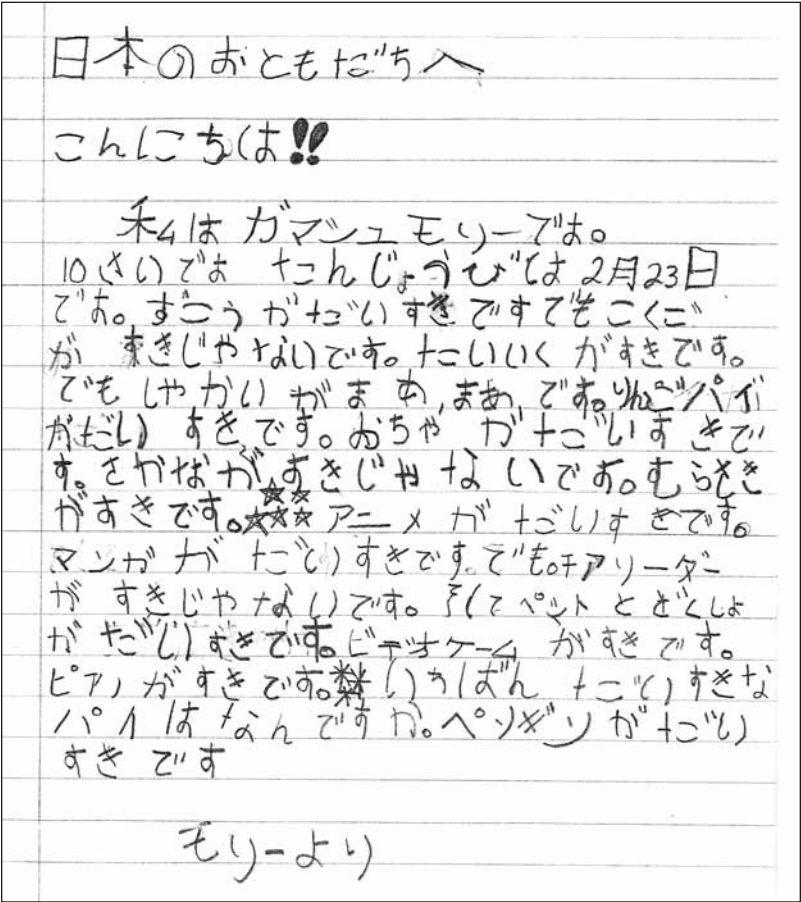 日本のおともだちへ
こんにちは!!
私はガマシュモリーです。
10さいです たんじょうびは2月23日
です。すごうがだいすきですでもこくご
が すきじゃないです。たいいくがすきです。
でもしゃかいがまあ,まあ,です。りんごパイ
がだいすきです。おちゃ がだいすきで
す。さかながすきじゃないです。むらさき
がすきです。☆☆☆☆☆アニメがだいすきです。
マンガがだいすきです。でも。チアリーダー
が すきじゃないです。そしてペットとどくしょ
がだいすきです。ビデオゲームがすきです。
ピアノがすきです。いちばん だいすきな
パイはなんですか。ペンギンがだい
すきです
モリーより